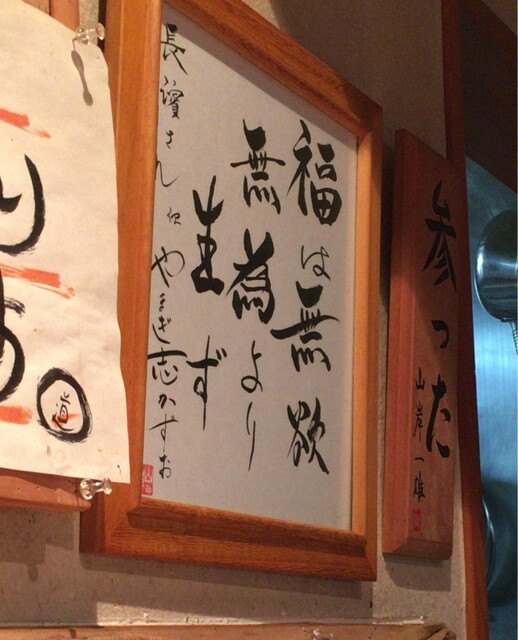 参った
山岸一雄
福は無欲
無為より
生ず
長濱さん江 やまぎ志かずお
道